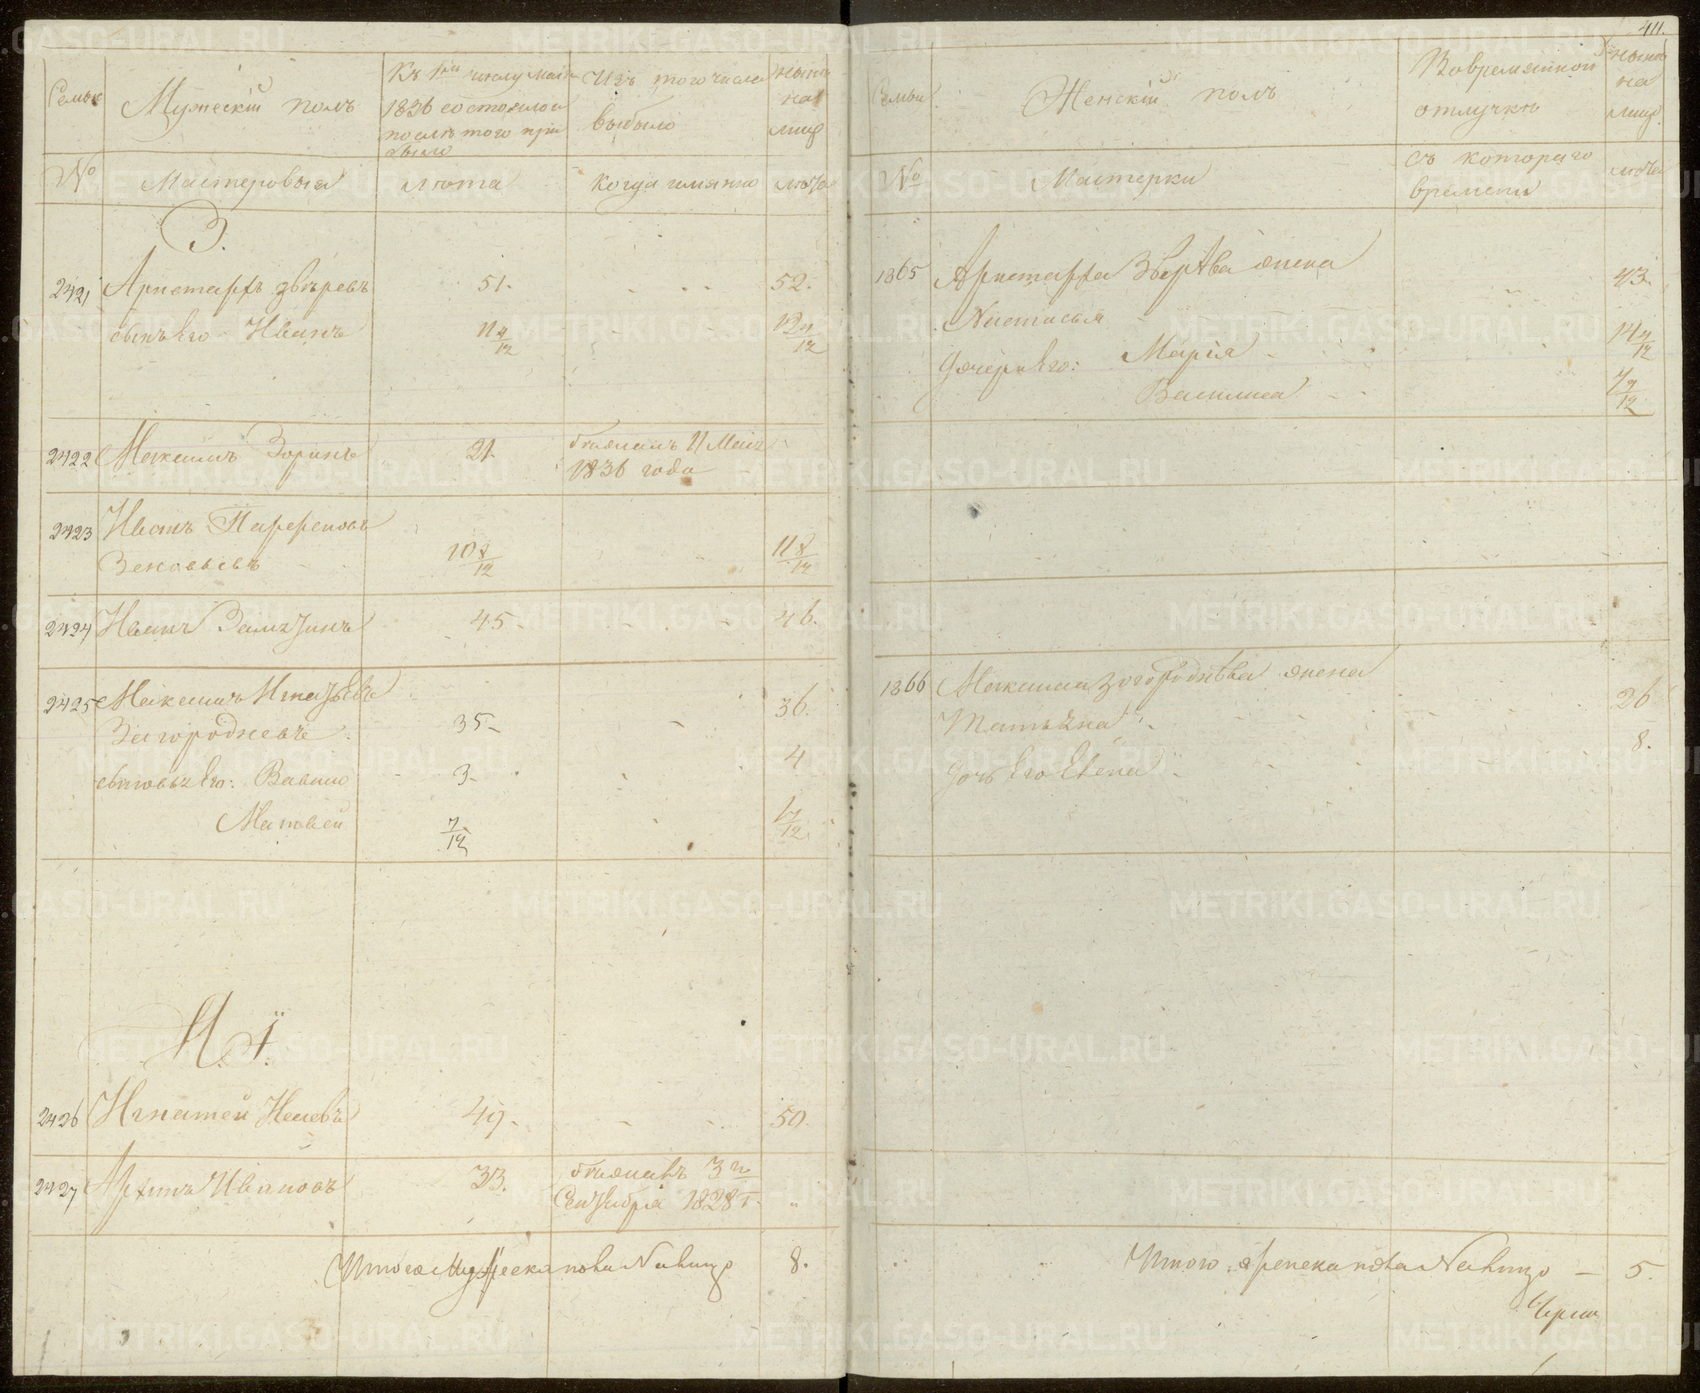 Семьи
Мужескій полъ
Къ 1му числу Маія
1836 состояло и
после того при
было
Изъ того числа
выбыло
ныне
на
лице
№
Мастеровыя
лѣта
когда имянно
лѣта
З.
2421
Аристархъ Звѣревъ
51.
52.
сынъ Его Иванъ
11 4/12
12 4/12
2422
Максимъ Зоринъ
21.
11 Маія
1836 года
2423
Иванъ Парфеновъ
Зеновьевъ
10 8/12
11 8/12
2424
Иванъ
45.
46.
2425
Максимъ Игнатьевъ
Загородневъ
35.
36.
сыновья Его: Вавило
3.
4
Матвей
7/12
1 7/12
И. і.
2426
Игнатей Исаевъ
49.
50.
2427
Архипъ Ивановъ
33.
3го
Сентября 1828 г.
Итого Мужеска пола Налицо
8.
Семьи
Женскій полъ
Вовремянной
отлучкѣ
ныне
на
лице
№
Мастерки
съ котораго
времени
лѣта
1865
Аристарха Зверѣва жена
43.
Настасья
дочери Его: Марія
14 4/12
Василиса
7/12
1866
Максима Загороднѣва жена
26
Татьяна
8.
дочь Его Елена
Итого женска пола Налицо
5.
METRIKI.GASO-URAL.RU